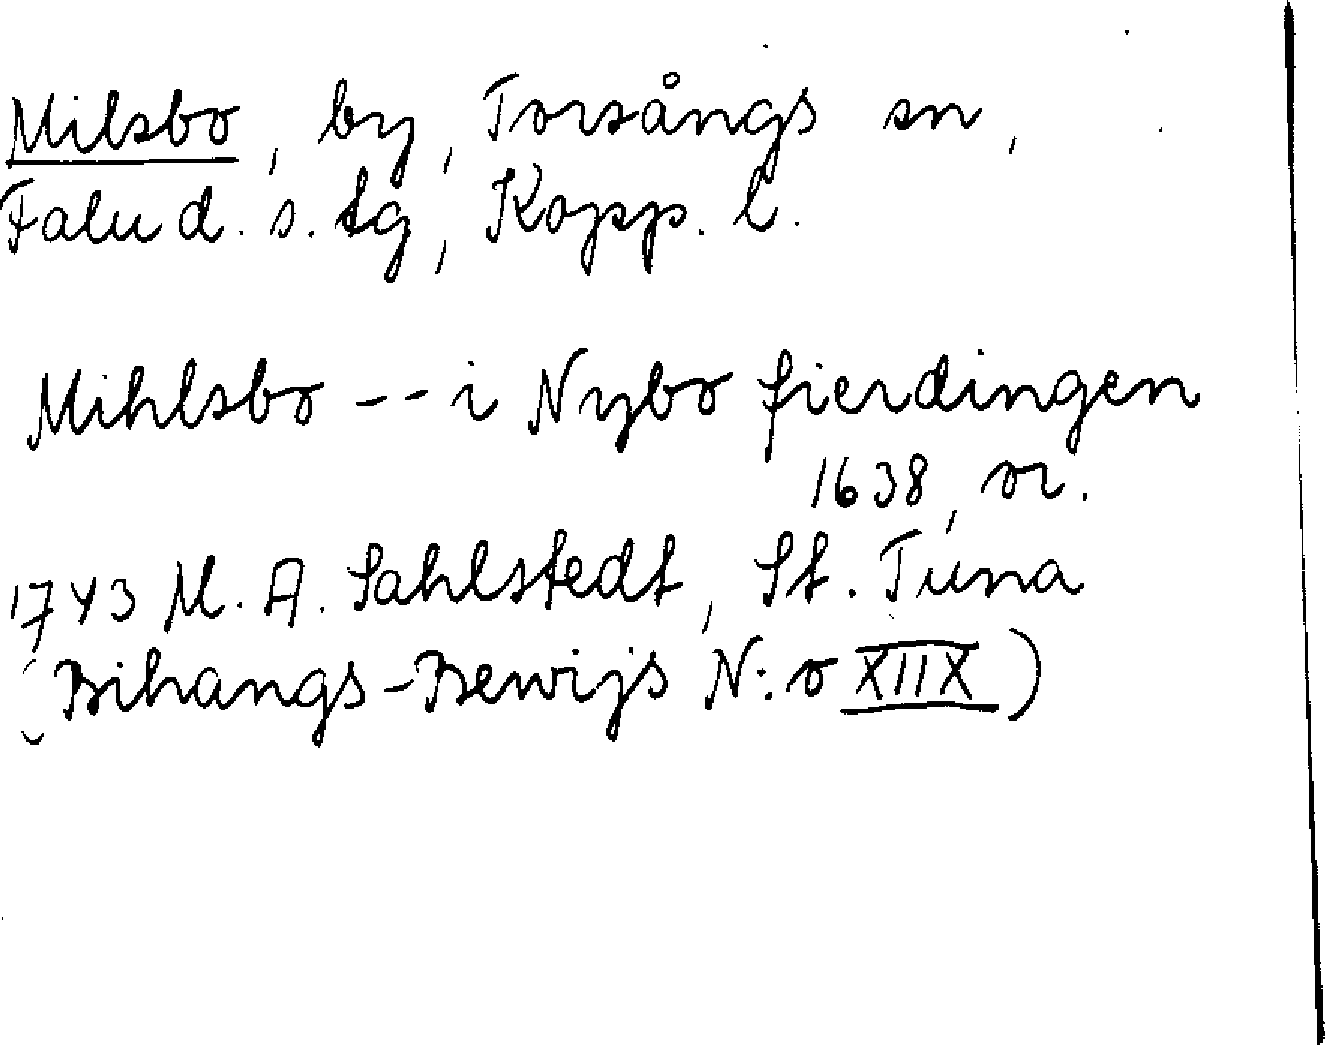 Milsbo, by, Torsångs sn,
Falu d. s. tg, Kopp. l.
Mihlsbo -- i Nybo fierdingen
1638, or.
1743 M. A. Sahlstedt, St. Tuna
(Bihangs-Bewijs N:o XIIX)